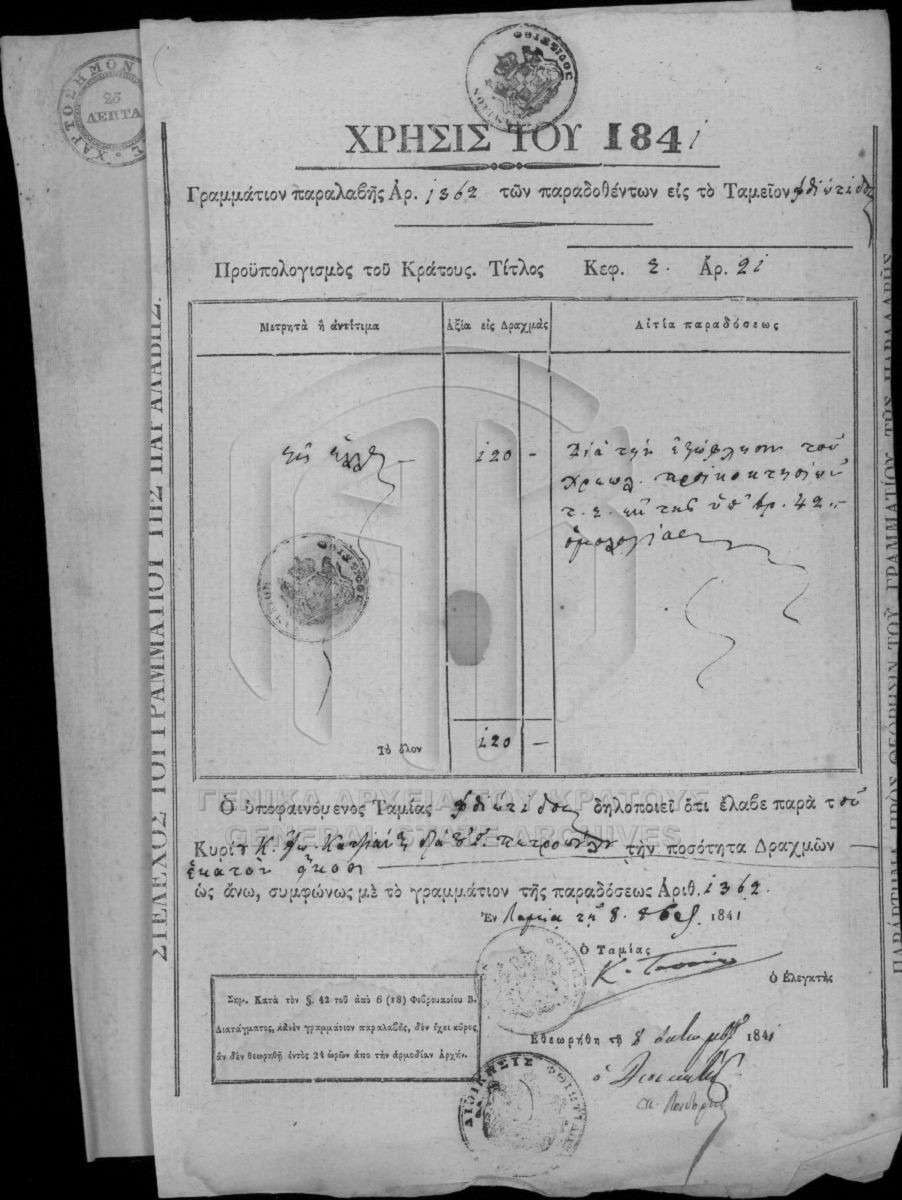 ΧΑΡΤΟΣΗΜΟΝ
25
ΛΕΠΤΑ
ΦΘΙΩΤΙΔΟΣ
ΧΡΗΣΙΣ ΤΟΥ 1841
Γραμμάτιον παραλαβῆς Ἀρ. 1362 τῶν παραδοθέντων εἰς τὸ Ταμεῖον Φθιώτιδος
Προϋπολογισμὸς τοῦ Κράτους. Τίτλος Κεφ. 2. Ἀρ. 21
Μετρητὰ ἢ ἀντίτιμα
Ἀξία εἰς Δραχμὰς
Αἰτία παραδόσεως
120 –
Διὰ τὴν ἐξώφλησιν τοῦ
τ. ὑπ' ἀρ. 42
ὁμολογίας
ΦΘΙΩΤΙΔΟΣ
Τὸ ὅλον 120 –
ΓΕΝΙΚΑ ΑΡΧΕΙΑ ΤΟΥ ΚΡΑΤΟΥΣ
GENERAL STATE ARCHIVES
Ὁ ὑποφαινόμενος Ταμίας Φθιώτιδος δηλοποιεῖ ὅτι ἔλαβε παρὰ τοῦ
Κυρίου Κ. τὴν ποσότητα Δραχμῶν
ἑκατὸν εἴκοσι
ὡς ἄνω, συμφώνως μὲ τὸ γραμμάτιον τῆς παραδόσεως Ἀριθ. 1362.
Ἐν Λαμίᾳ τῇ 8 8βρ 1841
Ὁ Ταμίας
Κ.
Ὁ Ἐλεγκτὴς
Σημ. Κατὰ τὸν §. 42 τοῦ ἀπὸ 6 (18) Φεβρουαρίου Β.
Διατάγματος, κανὲν γραμμάτιον παραλαβῆς, δὲν ἔχει κῦρος,
ἂν δὲν θεωρηθῇ ἐντὸς 24 ὡρῶν ἀπὸ τὴν ἁρμοδίαν Ἀρχήν.
Ἐθεωρήθη τῇ 8 Ὀκτωμβρ 1841
ὁ Διοικητὴς
ΔΙΟΙΚΗΣΙΣ ΦΘΙΩΤΙΔΟΣ
ΣΤΕΛΕΧΟΣ ΤΟΥ ΓΡΑΜΜΑΤΙΟΥ ΤΗΣ ΠΑΡΑΛΑΒΗΣ.
ΠΑΡΑΡΤΗΜΑ ΠΡΟΣ ΘΕΩΡΗΣΙΝ ΤΟΥ ΓΡΑΜΜΑΤΙΟΥ ΤΗΣ ΠΑΡΑΛΑΒΗΣ